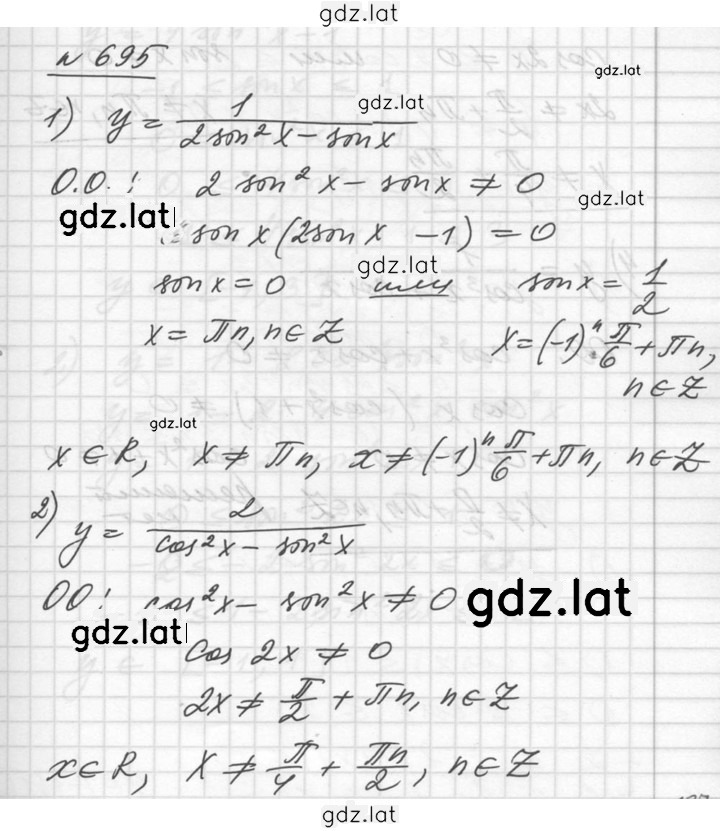 gdz.lat
№ 695
gdz.lat
1) y = 1 / (2 sin² x − sin x)
gdz.lat
О.О.: 2 sin² x − sin x ≠ 0
gdz.lat
gdz.lat
sin x (2 sin x − 1) = 0
gdz.lat
sin x = 0 или sin x = 1/2
x = πn, n ∈ Z x = (-1)ⁿ π/6 + πn,
n ∈ Z
gdz.lat
x ∈ R, x ≠ πn, x ≠ (-1)ⁿ π/6 + πn, n ∈ Z
2) y = 2 / (cos² x − sin² x)
ОО: cos² x − sin² x ≠ 0
gdz.lat
gdz.lat
cos 2x ≠ 0
2x ≠ π/2 + πn, n ∈ Z
x ∈ R, x ≠ π/4 + πn/2, n ∈ Z
gdz.lat